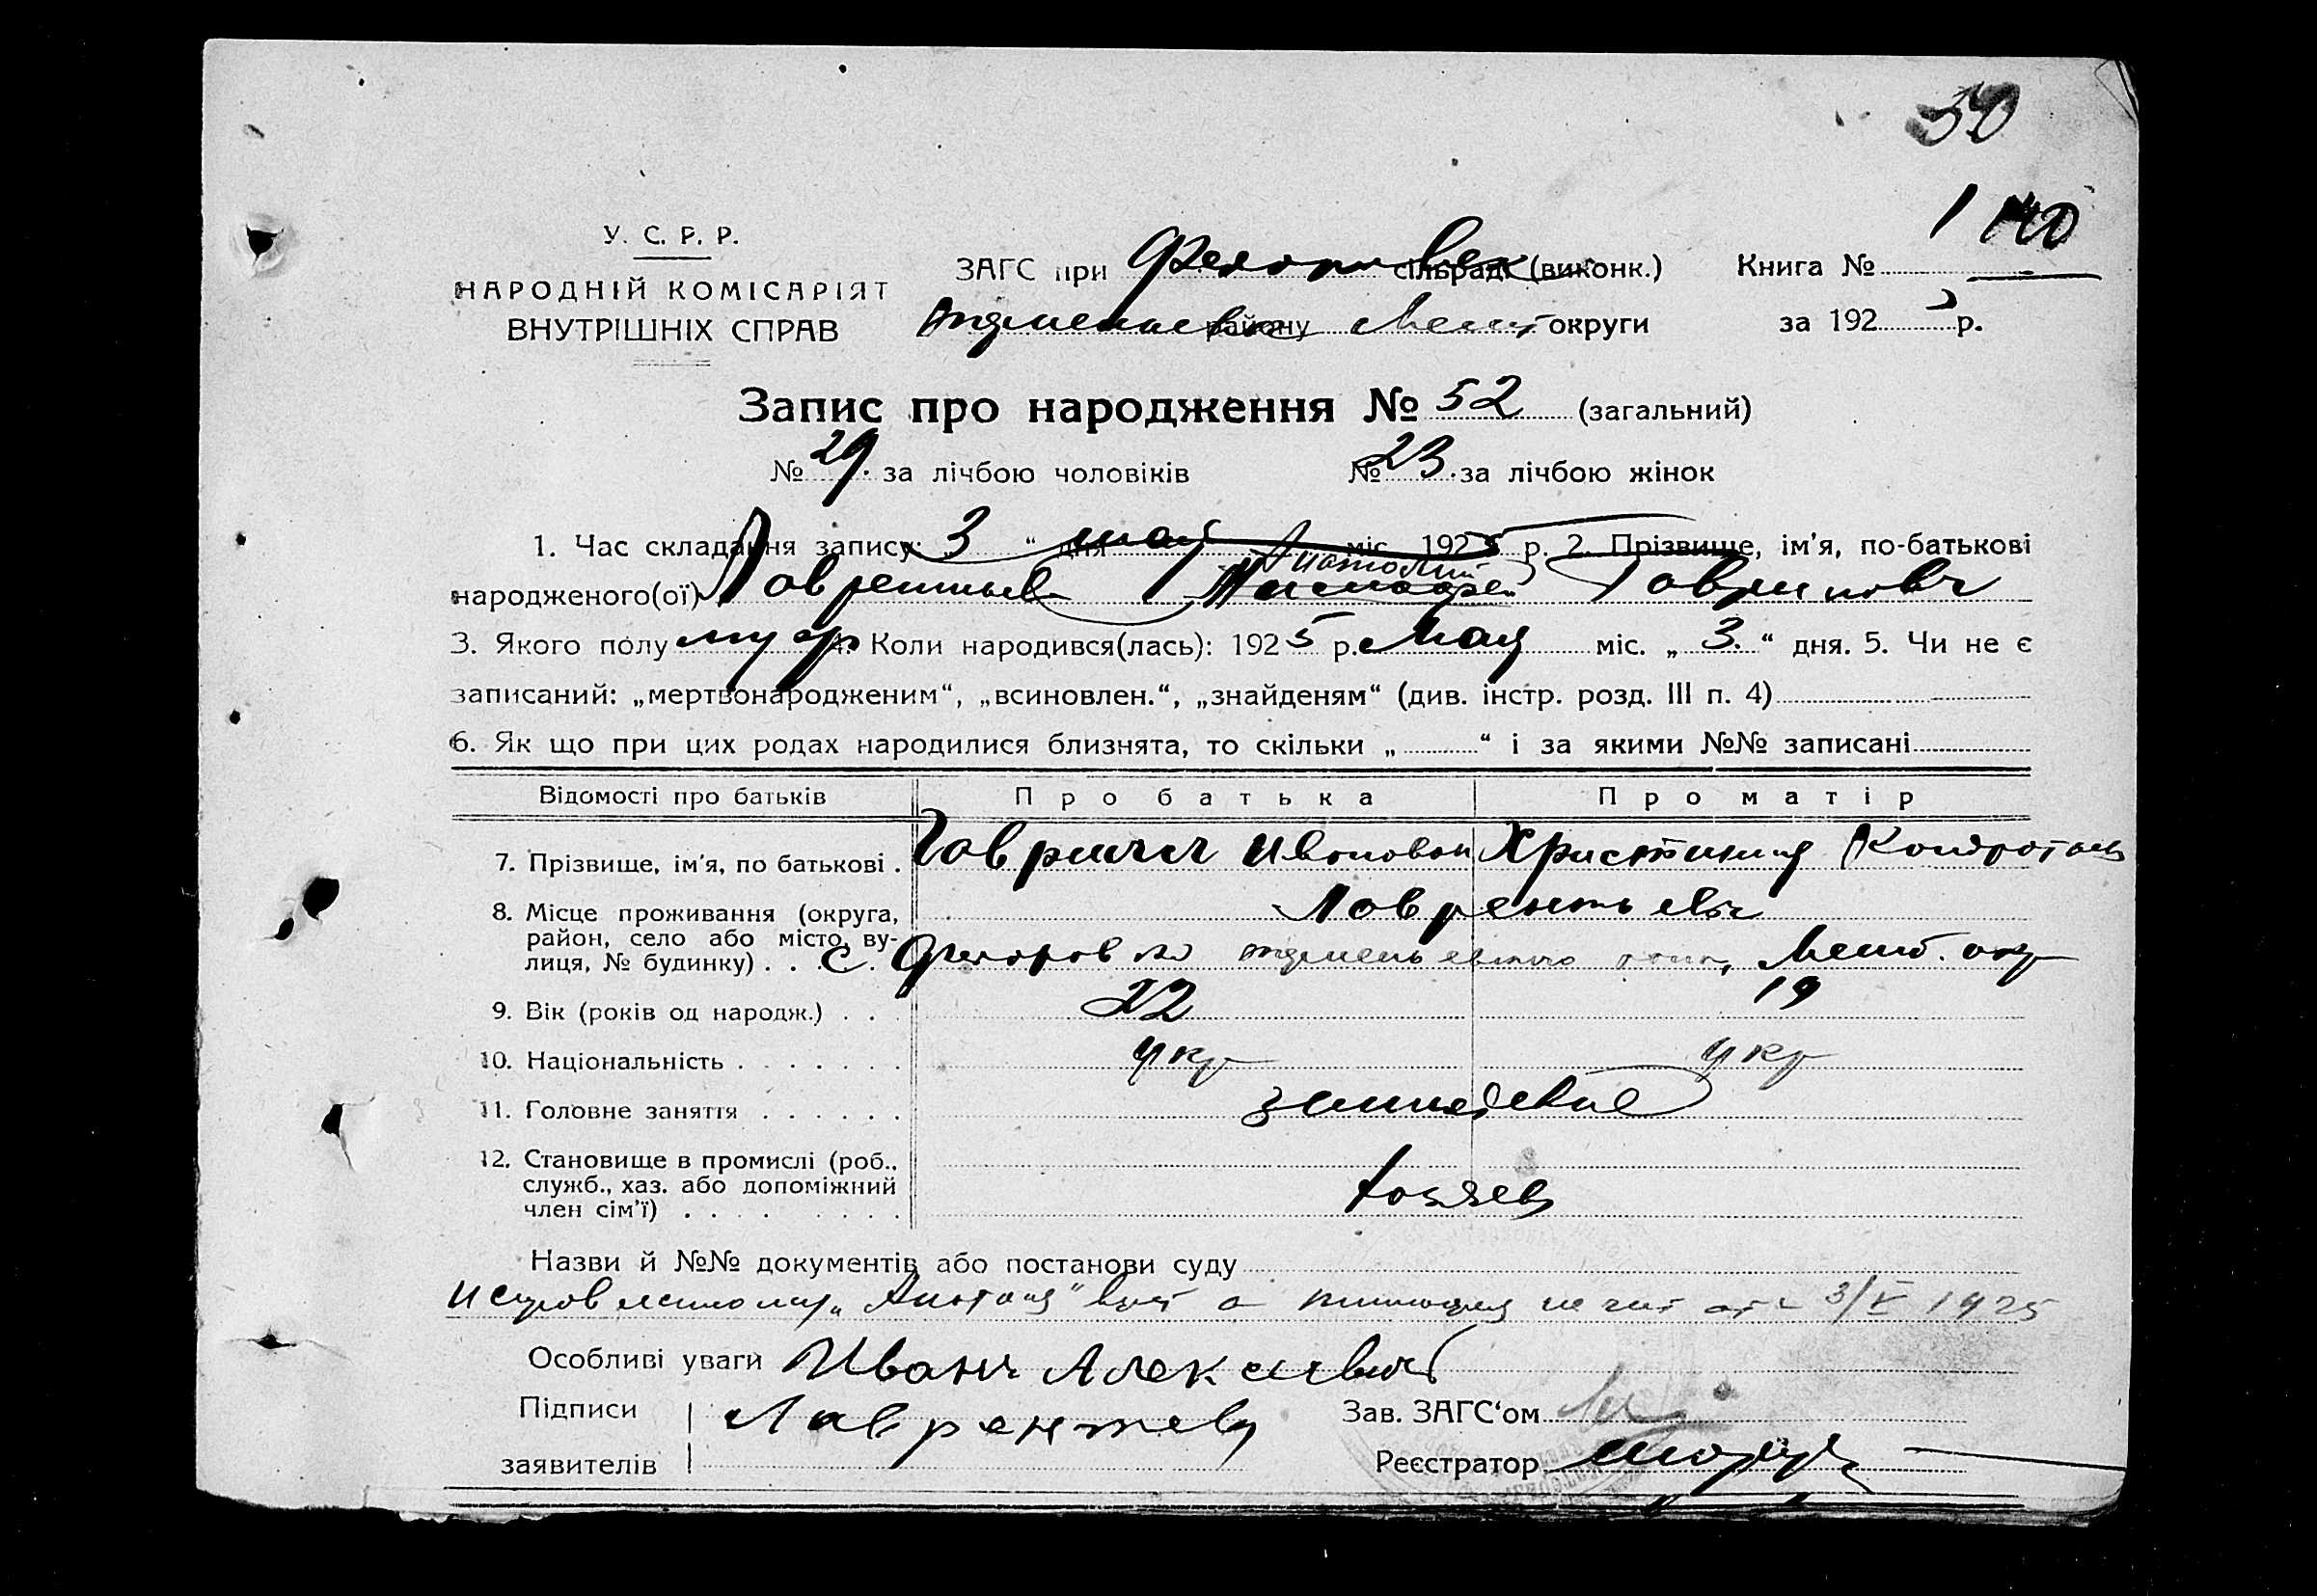 50
1 140
У. С. Р. Р.
НАРОДНІЙ КОМІСАРІЯТ
ВНУТРІШНІХ СПРАВ
ЗАГС при сільраді (виконк.) Книга №
району округи за 192 5 р.
Запис про народження № 52 (загальний)
№ 29 за лічбою чоловіків № 23 за лічбою жінок
1. Час складання запису: „ 3 “ дня мая міс. 1925 р. 2. Прізвище, ім'я, по-батькові
народженого(ої) Лаврентьев Анатолий Гаврилович
3. Якого полу муж 4. Коли народився(лась): 1925 р. мая міс. „ 3. “ дня. 5. Чи не є
записаний: „мертвонародженим“, „всиновлен.“, „знайденям“ (див. інстр. розд. III п. 4)
6. Як що при цих родах народилися близнята, то скільки „ “ і за якими №№ записані
Відомості про батьків Про батька Про матір
7. Прізвище, ім'я, по батькові . Гаврил Иванович Христиния
8. Місце проживання (округа,
район, село або місто, ву-
лиця, № будинку) . . . с.
9. Вік (років од народж.) . . . 22 19
10. Національність . . . . . . . укр укр
11. Головне заняття . . . . . .
12. Становище в промислі (роб.,
служб., хаз. або допоміжний
член сім'ї) . . . . . . . .
Назви й №№ документів або постанови суду
3/V 1925
Особливі уваги Иван Алексеевич
Підписи Лаврентев Зав. ЗАГС'ом
заявителів Реєстратор